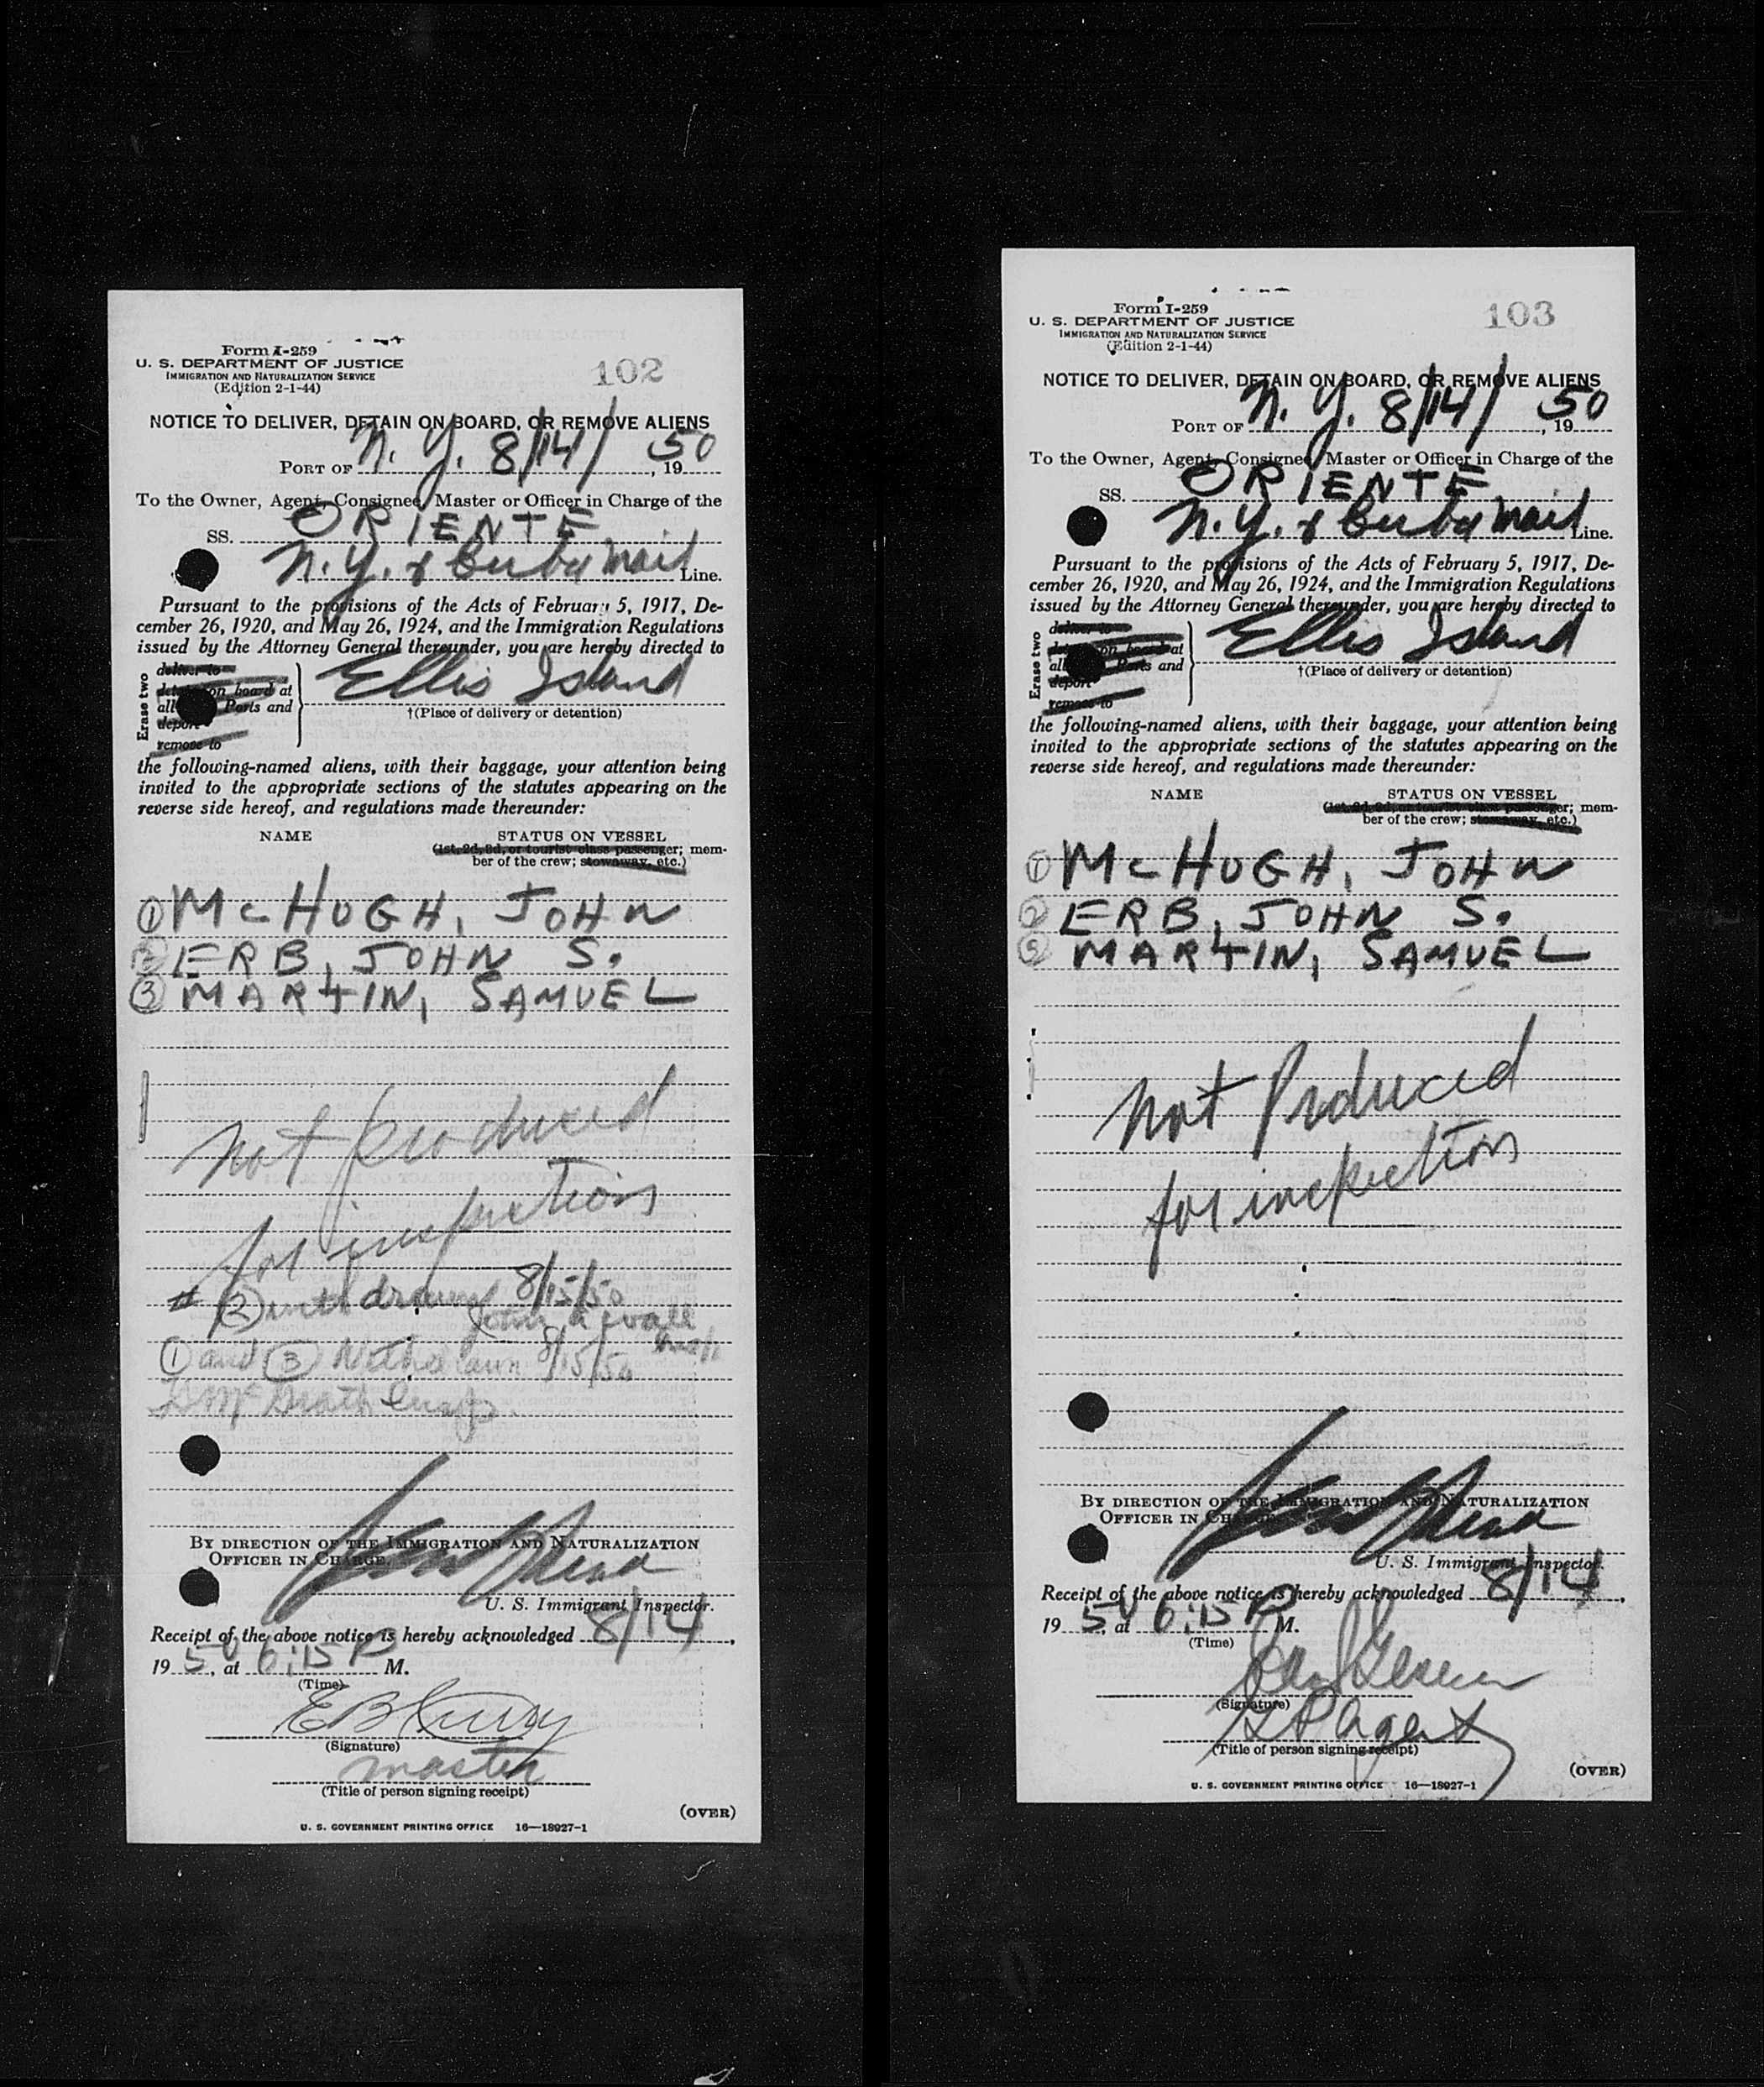 Form I-259
U. S. DEPARTMENT OF JUSTICE
IMMIGRATION AND NATURALIZATION SERVICE
(Edition 2-1-44)
102
NOTICE TO DELIVER, DETAIN ON BOARD, OR REMOVE ALIENS
PORT OF N. Y. 8/14/, 1950
To the Owner, Agent, Consignee, Master or Officer in Charge of the
SS. ORIENTE
N.Y. & Cuba Mail Line.
Pursuant to the provisions of the Acts of February 5, 1917, De-
cember 26, 1920, and May 26, 1924, and the Immigration Regulations
issued by the Attorney General thereunder, you are hereby directed to
Erase two
deliver to
detain on board at
all Ports and
deport
remove to
Ellis Island
†(Place of delivery or detention)
the following-named aliens, with their baggage, your attention being
invited to the appropriate sections of the statutes appearing on the
reverse side hereof, and regulations made thereunder:
NAME STATUS ON VESSEL
(1st, 2d, 3d, or tourist class passenger; mem-
ber of the crew; stowaway, etc.)
① McHUGH, JOHN
② ERB, JOHN S.
③ MARTIN, SAMUEL
not produced
for inspection
# ② withdrawn 8/15/50
① and ③ Withdrawn 8/15/50
BY DIRECTION OF THE IMMIGRATION AND NATURALIZATION
OFFICER IN CHARGE.
U. S. Immigrant Inspector.
Receipt of the above notice is hereby acknowledged 8/14,
1950, at 6:15 P M.
(Time)
(Signature)
master
(Title of person signing receipt)
(OVER)
U. S. GOVERNMENT PRINTING OFFICE 16—18927-1
Form I-259
U. S. DEPARTMENT OF JUSTICE
IMMIGRATION AND NATURALIZATION SERVICE
(Edition 2-1-44)
103
NOTICE TO DELIVER, DETAIN ON BOARD, OR REMOVE ALIENS
PORT OF N. Y. 8/14/, 1950
To the Owner, Agent, Consignee, Master or Officer in Charge of the
SS. ORIENTE
N.Y. & Cuba Mail Line.
Pursuant to the provisions of the Acts of February 5, 1917, De-
cember 26, 1920, and May 26, 1924, and the Immigration Regulations
issued by the Attorney General thereunder, you are hereby directed to
Erase two
deliver to
detain on board at
all Ports and
deport
remove to
Ellis Island
†(Place of delivery or detention)
the following-named aliens, with their baggage, your attention being
invited to the appropriate sections of the statutes appearing on the
reverse side hereof, and regulations made thereunder:
NAME STATUS ON VESSEL
(1st, 2d, 3d, or tourist class passenger; mem-
ber of the crew; stowaway, etc.)
① McHUGH, JOHN
② ERB, JOHN S.
③ MARTIN, SAMUEL
not Produced
for inspection
BY DIRECTION OF THE IMMIGRATION AND NATURALIZATION
OFFICER IN CHARGE.
U. S. Immigrant Inspector.
Receipt of the above notice is hereby acknowledged 8/14,
1950, at 6:15 P M.
(Time)
(Signature)
agent
(Title of person signing receipt)
(OVER)
U. S. GOVERNMENT PRINTING OFFICE 16—18927-1